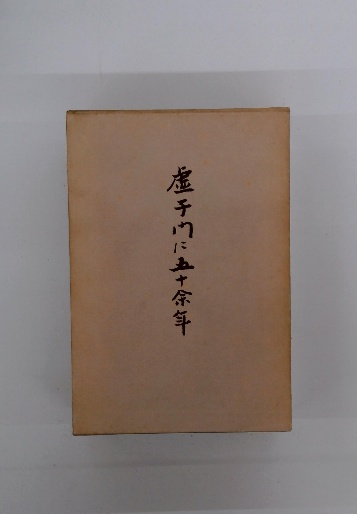 虚子門に五十余年